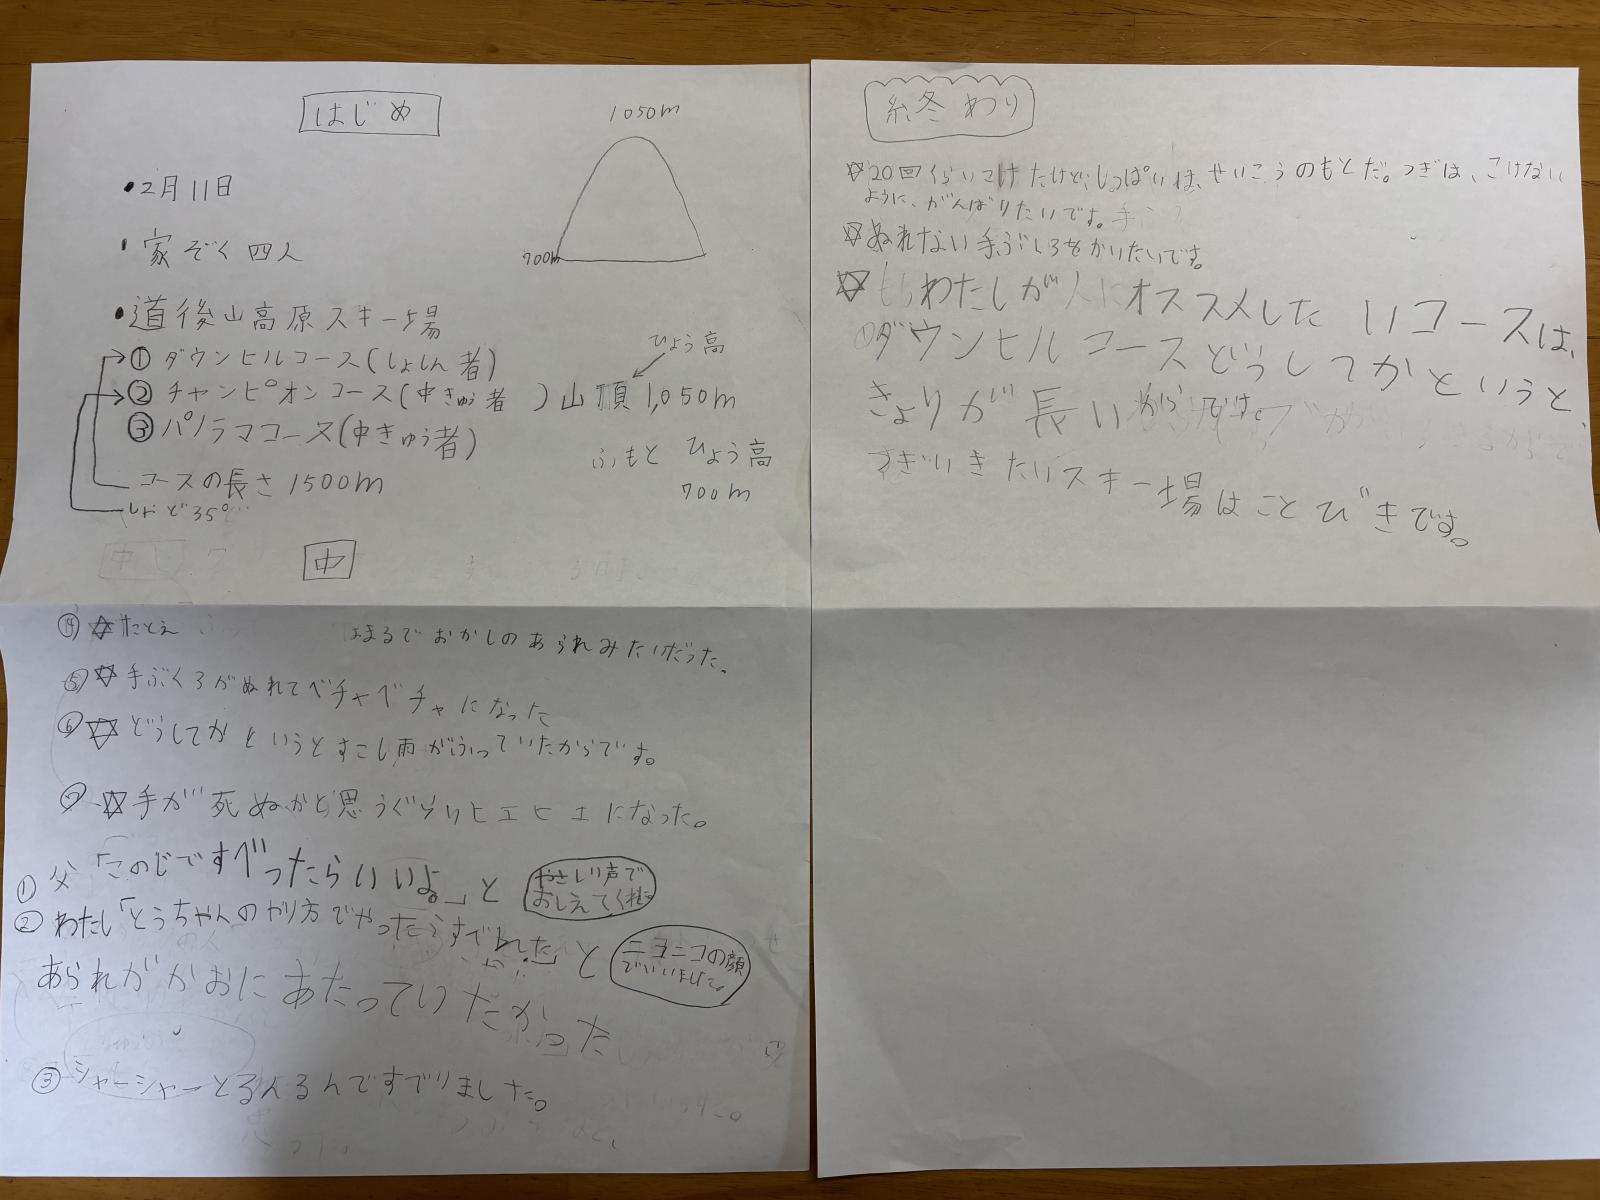 はじめ
1050m
700m
・2月11日
・家ぞく四人
・道後山高原スキー場
①ダウンヒルコース(しょしん者)
②チャンピオンコース(中きゅう者)
③パノラマコース(中きゅう者)
コースの長さ1500m
しゃど35°
ひょう高
山頂1,050m
ふもと ひょう高
700m
中
④☆たとえ はまるでおかしのあられみたいだった。
⑤☆手ぶくろがぬれてベチャベチャになった
⑥☆どうしてかというとすこし雨がふっていたからです。
⑦☆手が死ぬかと思うぐらいヒエヒエになった。
①父「このじですべったらいいよ。」と
やさしい声で
おしえてくれた
②わたし「とうちゃんのやり方でやったら と
ニコニコの顔
でいいました。
あられががおにあたっていたかった
③シャーシャーとるんるんですべりました。
終わり
☆20回くらいこけたけど、しっぱいは、せいこうのもとだ。つぎは、こけない
ように、がんばりたいです。
☆ぬれない手ぶくろをかいたいです。
☆わたしが人にオススメしたいコースは、
ダウンヒルコースどうしてかというと、
きょりが長いからです。
つぎいきたいスキー場はことびきです。